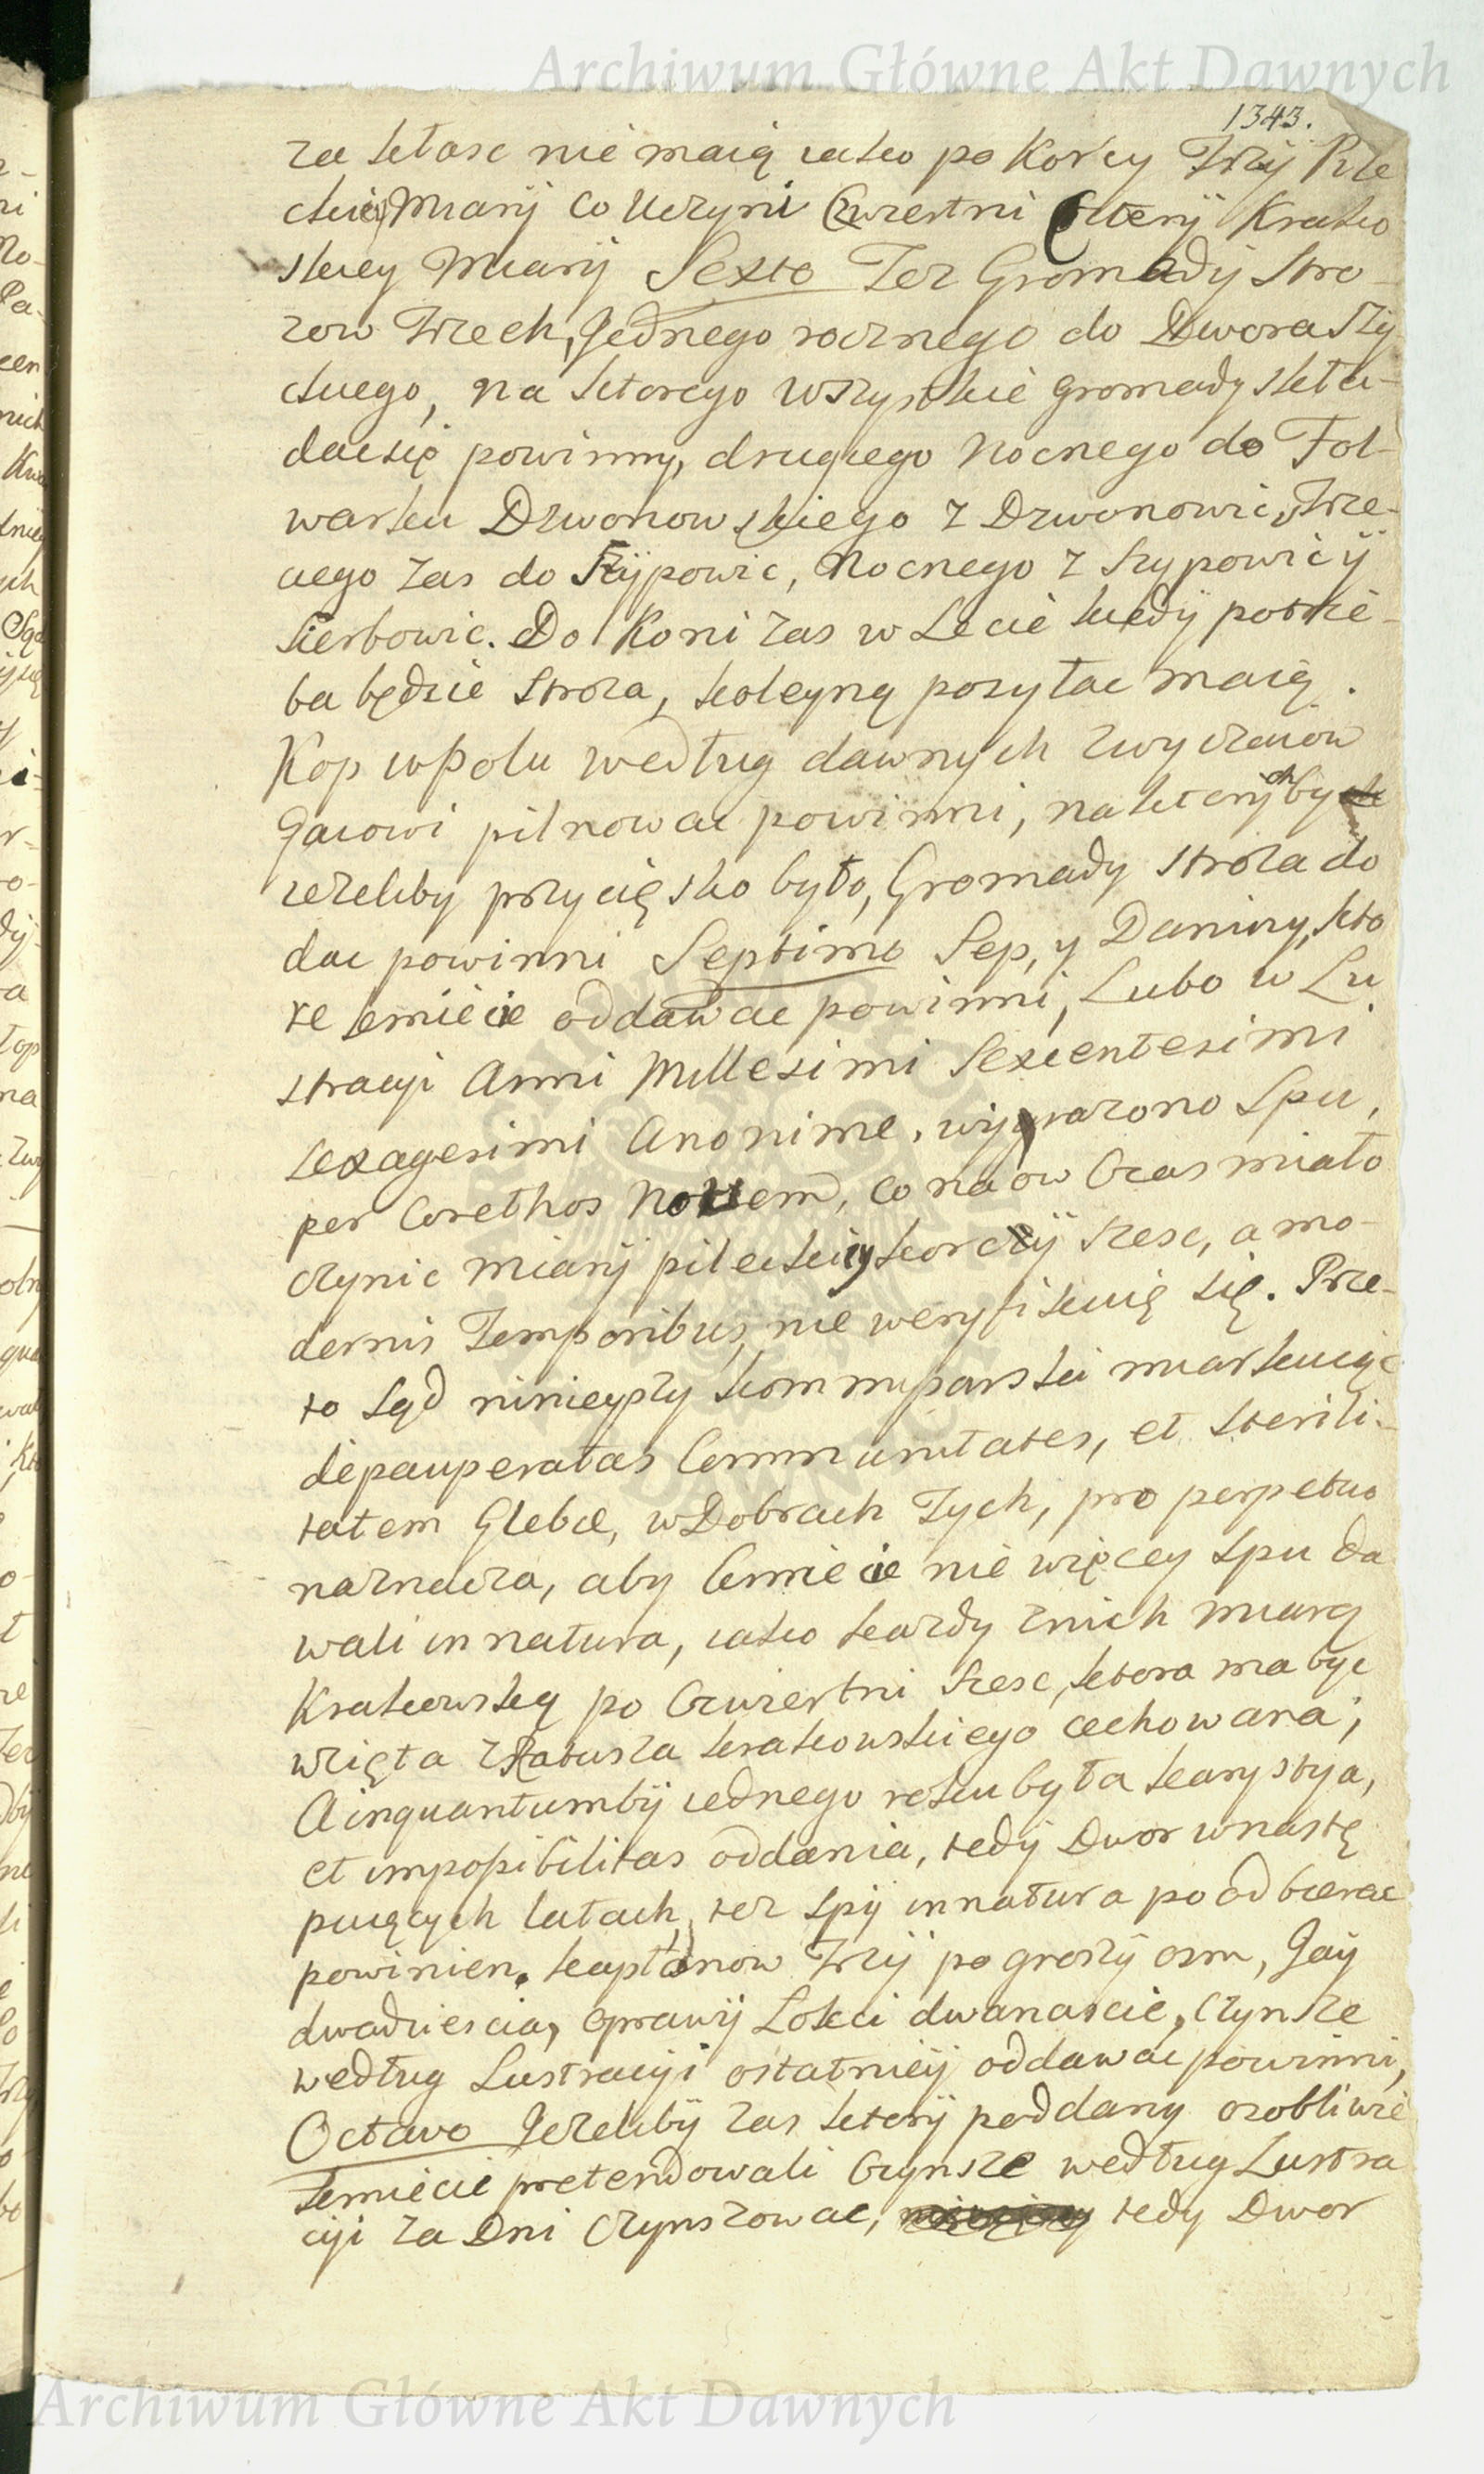 Archiwum Główne Akt Dawnych
1343.
za kłosc nie maią iako po Korcy Trzÿ Pile
ckieÿ Miarÿ co uczyni Cwiertni Czterÿ Krako
skiey Miarÿ Sexto Tez Gromadÿ Stro-
zow Trzech, Jednego rocznego do Dwora Szÿ
ckiego, na ktorego wszystkie gromady skła-
dac się powinny, drugiego Nocnego do Fol-
warku Dzwonowskiego z Dzwonowic, Trze-
ciego zas do Szÿpowic, Nocnego z Szypowic ÿ
Sierbowic. Do Koni zas w Lecie kiedÿ potrze-
ba będzie stroza, koleyną posyłac maią.
Kop w Polu według dawnych zwyczaiow
Gaiowi pilnowac powinni, na ktorÿch by
iezeliby przycięsko było, Gromady stroza do
dac powinni Septimo Sep, y Daniny, kto
re kmiecie oddawac powinni, Lubo w Lu
stracyi Anni Millesimi Sexcentesimi
sexagesimi Anonime, wyrazono Spu,
per Corethos Novem, co na ow Czas miało
czynic Miarÿ pileckiey korcÿ szesc, a mo-
dernis Temporibus, nie weryfikuię się. Prze-
to Sąd ninieyszy kommissarski miarkuiąc
depauperatas Communitates, et sterili-
tatem Glebæ, w Dobrach Tych, pro perpetuo
naznacza, aby kmiecie nie więcey Spu da
wali in natura, iako kazdy z nich miarą
Krakowską po Cwiertni szesc, ktora ma byc
wzięta z Ratusza krakowskiego cechowana;
A inquantumbÿ iednego roku była karystya,
et impossibilitas oddania, tedÿ Dwor w nastę
puiących latach, tez Spÿ in natura poodbierac
powinien. kapłonow Trzÿ po groszÿ osm, Jaÿ
dwadziescia, oprawÿ Łokci dwanascie, czynsze
według Lustracyi ostatnieÿ oddawac powinni,
Octavo Jezelibÿ zas ktorÿ poddany osobliwie
kmiecie pretendowali Czynsze według Lustra
cyi za Dni czynszowac, tedy Dwor
Archiwum Główne Akt Dawnych